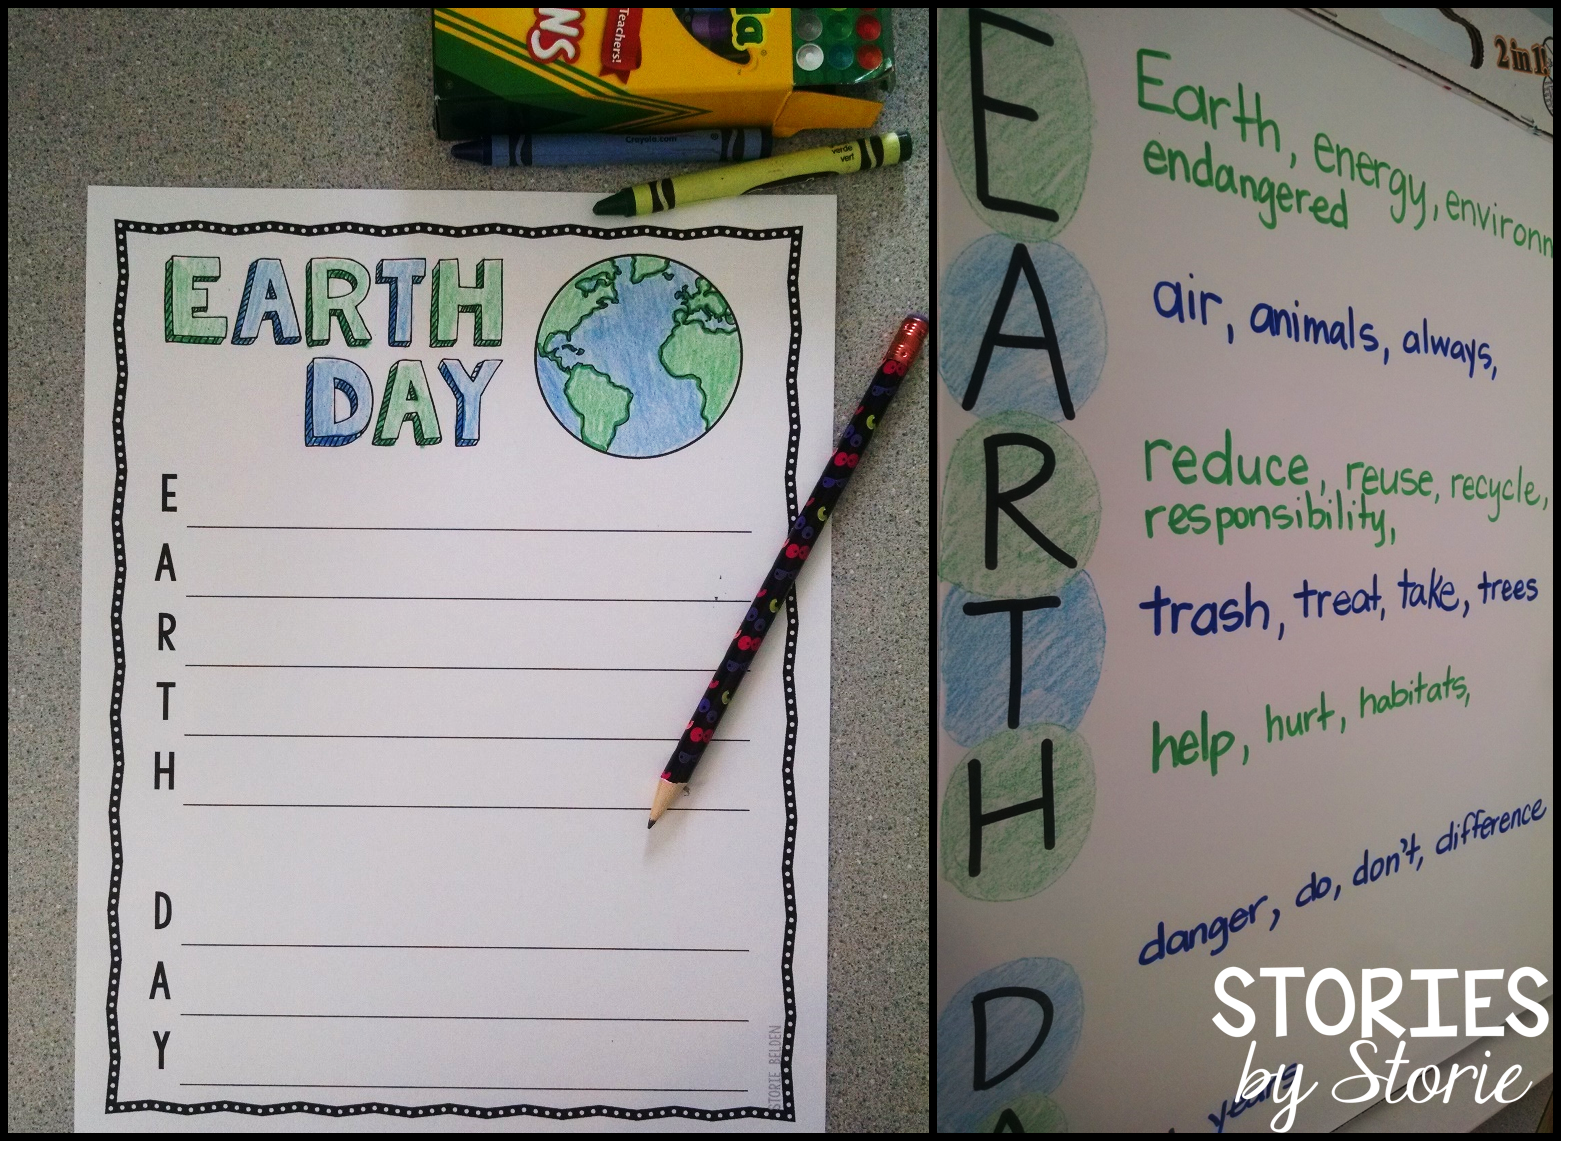 NS
Teachers!
Crayola.com
verde
vert
EARTH
DAY
E
A
R
T
H
D
A
Y
STORIE BELDEN
2 in 1!
E
Earth, energy, environm
endangered
A
air, animals, always,
R
reduce, reuse, recycle,
responsibility,
T
trash, treat, take, trees
H
help, hurt, habitats,
D
danger, do, don't, difference
A
years
STORIES
by Storie